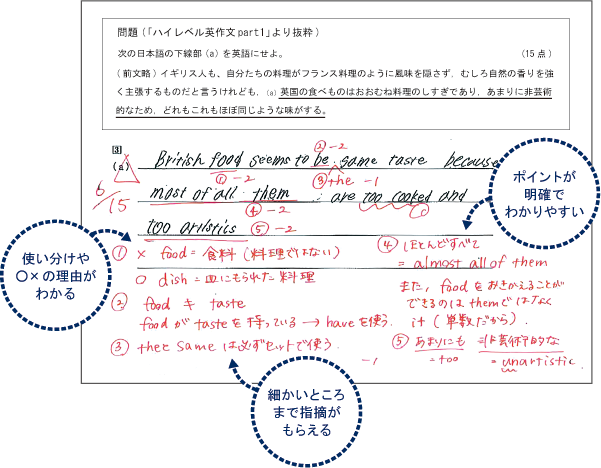 問題(「ハイレベル英作文part1」より抜粋)
次の日本語の下線部(a)を英語にせよ。 (15点)
(前文略)イギリス人も、自分たちの料理がフランス料理のように風味を隠さず、むしろ自然の香りを強
く主張するものだと言うけれども、(a)英国の食べものはおおむね料理のしすぎであり、あまりに非芸術
的なため、どれもこれもほぼ同じような味がする。
3
② -2
(a) British food seems to be same taste because
① -2 ③ the -1
6/15 most of all them are too cooked and
④ -2
too artistics ⑤ -2
① × food = 食料(料理ではない)
○ dish = 皿にもられた料理
② food ≠ taste
foodがtasteを持っている → haveを使う
③ theとsameは必ずセットで使う。
-1
④ ほとんどすべて
= almost all of them
また、foodをおきかえることが
できるのはthemではなく
it(単数だから).
⑤ あまりにも 非芸術的な
= too = unartistic.
ポイントが
明確で
わかりやすい
使い分けや
○×の理由が
わかる
細かいところ
まで指摘が
もらえる